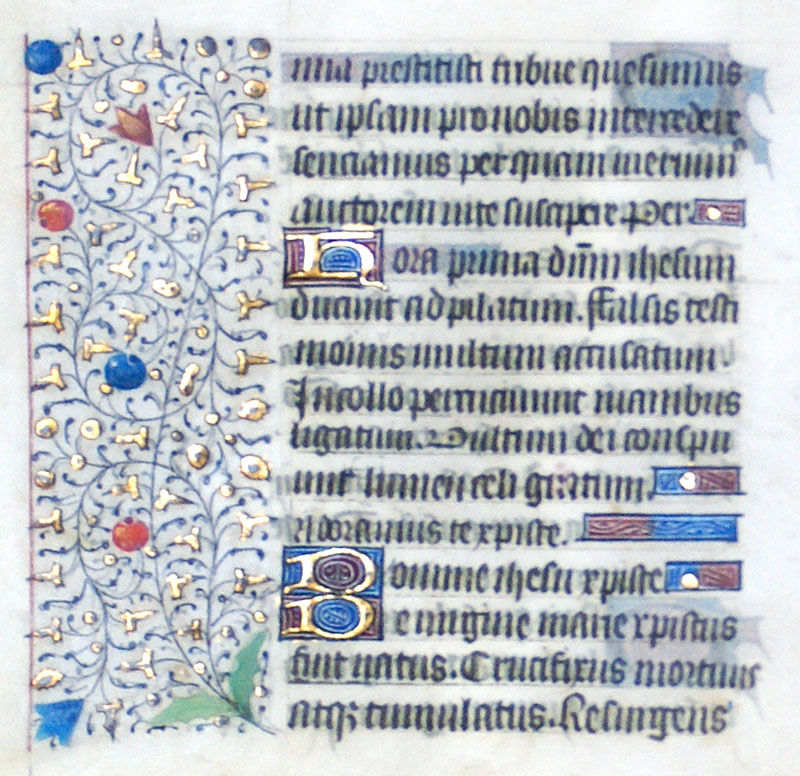 mia prestitisti tribue quesumus
ut ipsam pro nobis intercedere
senciamus per quam meruim
auctorem vite suscipere. Per.
Hora prima dnm ihesum
ducunt ad pilatum. Falsis testi
moniis multum accusatum.
In collo percuciunt manibus
ligatum. Vultum dei conspu
unt lumen celi gratum.
Adoramus te xpiste.
Domine ihesu xpiste
De virgine marie xpistus
fuit natus. Crucifixus mortuus
atqz tumulatus. Resurgens